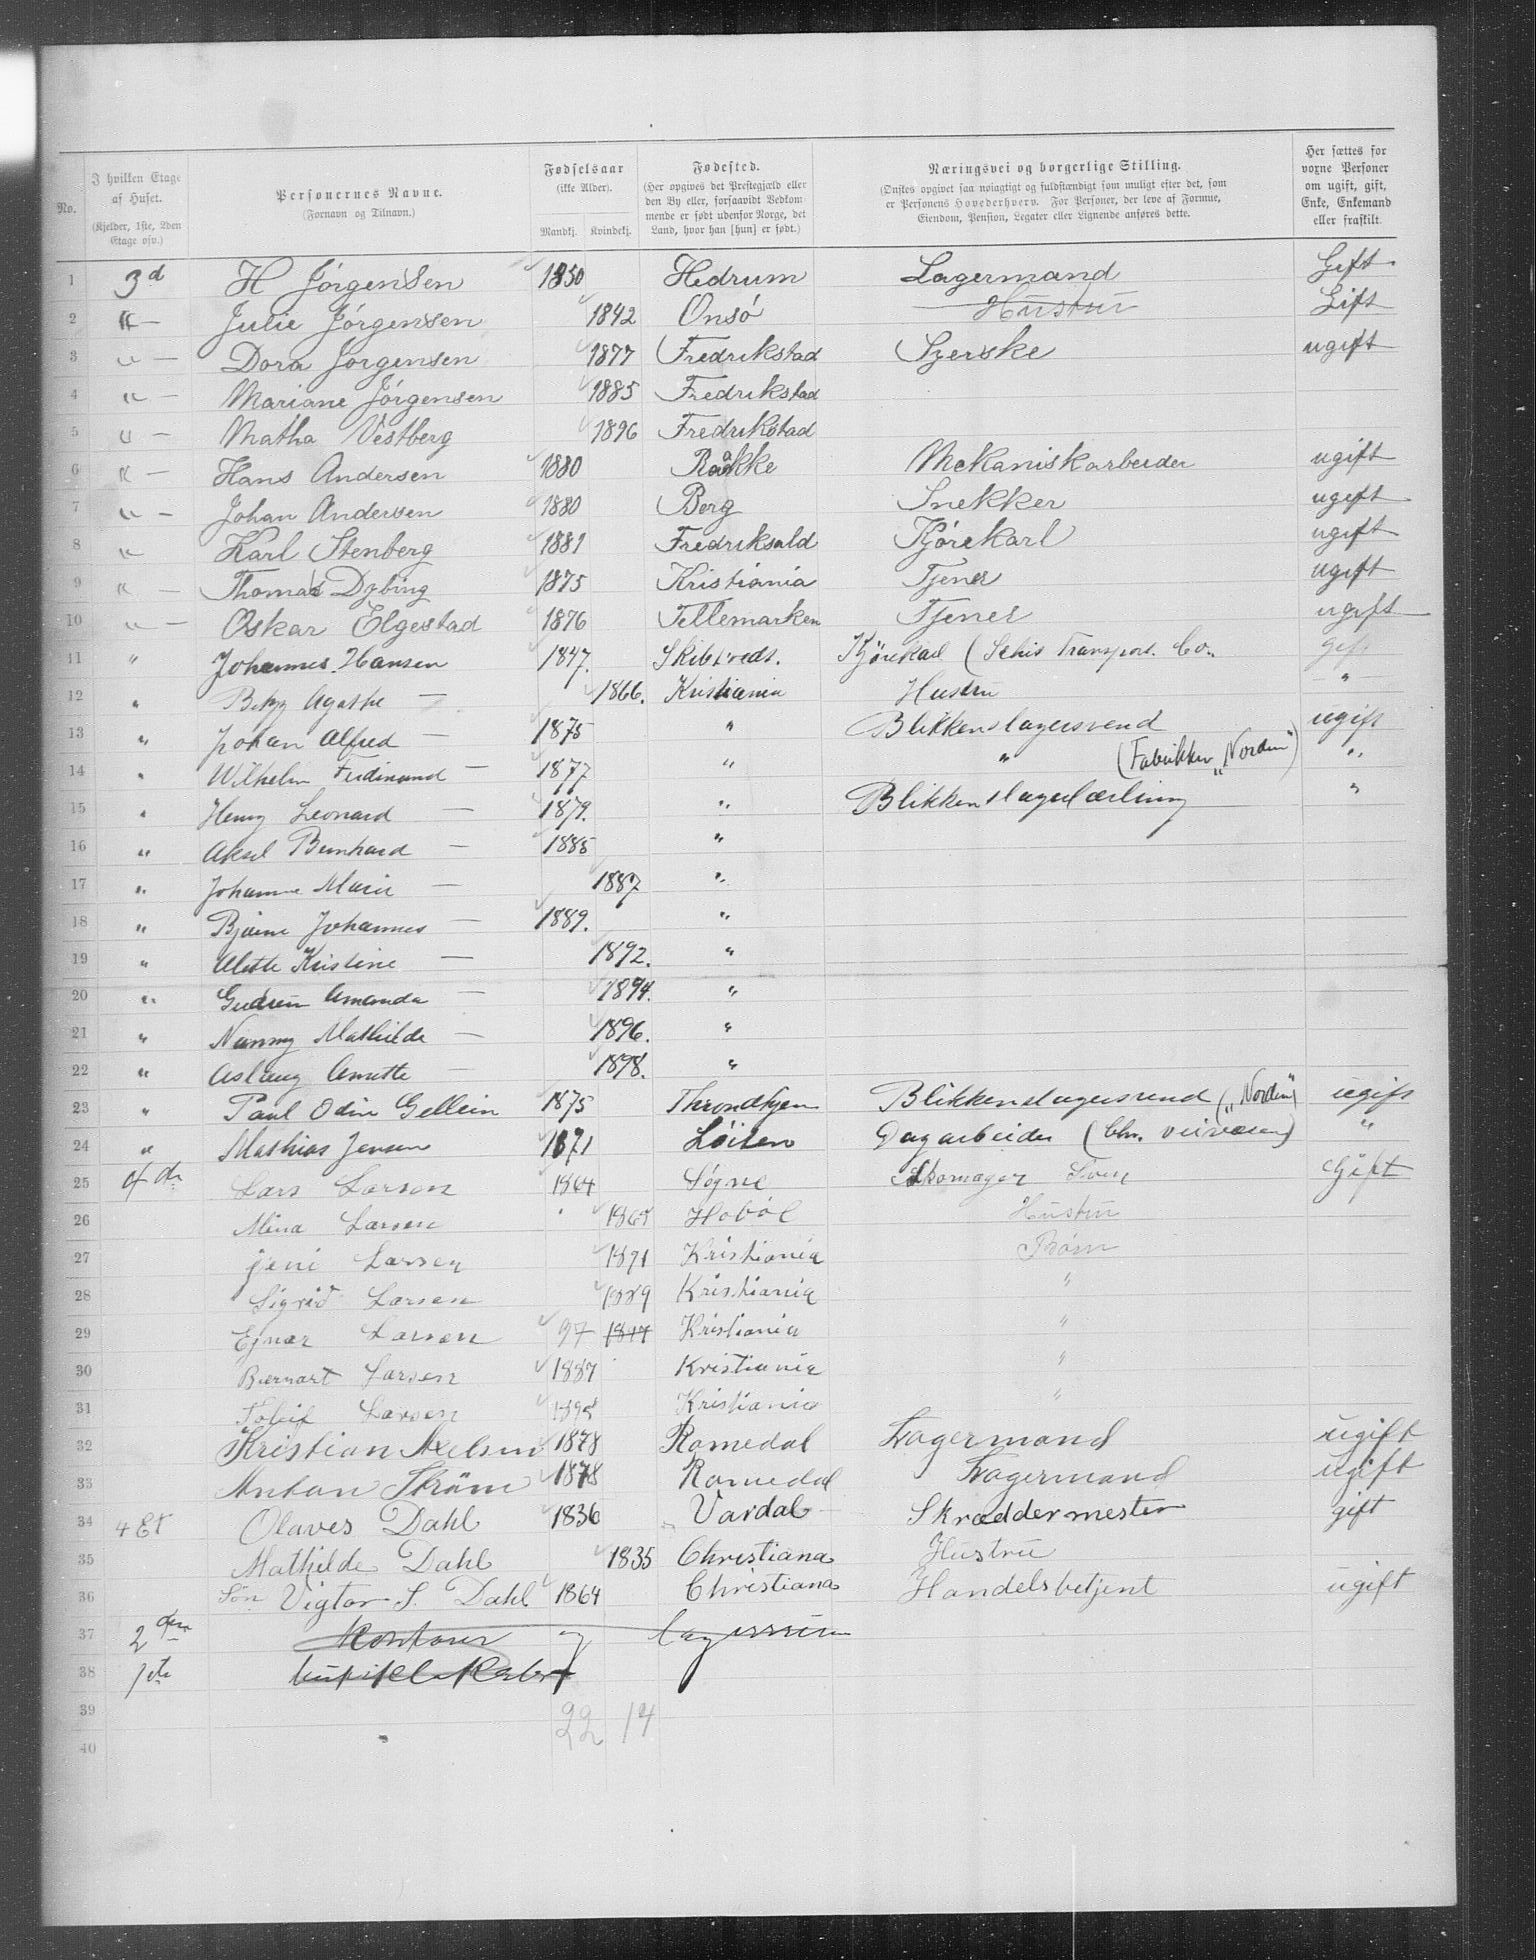 No. | I hvilken Etage af Huset. (Kjelder, 1ste, 2den Etage osv.) | Personernes Navne. (Fornavn og Tilnavn.) | Fødselsaar (ikke Alder). Mandkj. Kvindekj. | Fødested. (Her opgives det Prestegjæld eller den By eller, forsaavidt Vedkommende er født udenfor Norge, det Land, hvor han [hun] er født.) | Næringsvei og borgerlige Stilling. (Ønskes opgivet saa nøiagtigt og fuldstændigt som muligt efter det, som er Personens Hovederhverv. For Personer, der leve af Formue, Eiendom, Pension, Legater eller Lignende anføres dette. | Her sættes for voxne Personer om ugift, gift, Enke, Enkemand eller fraskilt.
1 3d H Jörgensen 1850 Hedrum Lagermand Gift
2 " — Julie Jörgensen 1842 Onsö Hustru Gift
3 " — Dora Jorgensen 1877 Fredrikstad Syerske ugift
4 " — Mariane Jörgensen 1885 Fredrikstad
5 " — Matha Vestberg 1896 Fredrikstad
6 " — Hans Andersen 1880 Rakke Mekaniskarbeider ugift
7 " — Johan Andersen 1880 Berg Snekker ugift
8 " Karl Stenberg 1881 Fredriksald Kjörekarl ugift
9 " — Thomas Dybing 1875 Kristiania Tjener ugift
10 " — Oskar Elgestad 1876 Tellemarken Tjener ugift
11 " Johannes Hansen 1847. Skibtvedt. Kjørekarl ( Schis Transport. Co.. gift
12 " Betzy Agathe — 1866. Kristiania Hustru "
13 " Johan Alfred — 1875 " Blikkenslagersvend ugift
14 " Wilhelm Ferdinand — 1877 " " (Fabrikken „Norden“) "
15 " Henry Leonard — 1879. " Blikkenslagerlærling "
16 " Aksel Bernhard — 1885 "
17 " Johanne Marie — 1887 "
18 " Bjarne Johannes — 1889. "
19 " Alette Kristine — 1892. "
20 " Gudrun Amanda — 1894. "
21 " Nanny Mathilde — 1896. "
22 " Aslaug Anette — 1898. "
23 " Paul Odin Gellein 1875 Throndhjem Blikkenslagersvend („Norden“) ugift
24 " Mathias Jensen 1871 Löiten Dagarbeider (Chr. veivæsen) "
25 4de Lars Larsen 1864 Søgne Skomager Sven Gift
26 Mina Larsen 1865 Hoböl Hustru
27 Jeni Larsen 1891 Kristiania Börn
28 Sigrid Larsen 1889 Kristiania "
29 Ejnar Larsen 97 1897 Kristiania "
30 Bernart Larsen 1887 Kristiania "
31 Larsen 1895 Kristiania "
32 Kristian Nelsen 1878 Romedal Lagermand ugift
33 Anton Ström 1878 Romedal Lagermand ugift
34 4 Et Olaves Dahl 1836 Vardal Skræddermester gift
35 Mathilde Dahl 1835 Christiana Hustru
36 Sön Vigtor S. Dahl 1864 Christiana Handelsbetjent ugift
37 2den Kontorer og
38 1ste
39 22 14
40